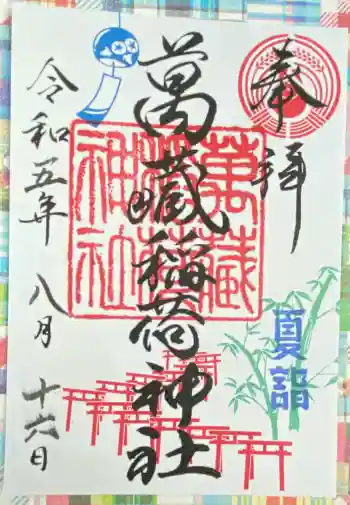 奉拝
夏詣
萬蔵稲荷神社
萬蔵稲荷神社
令和五年 八月 十六日